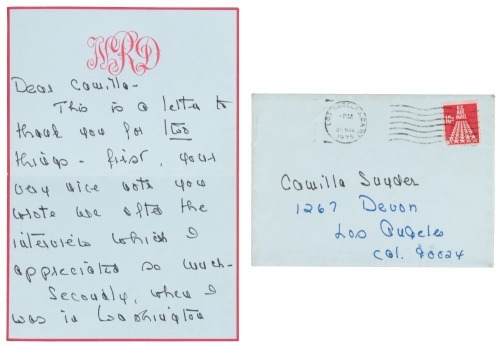 NRD
Dear Camilla-
This is a letter to
thank you for two
things - first, your
very nice note you
wrote me after the
interview which I
appreciated so much-
Secondly, when I
was in Washington
LOS ANGELES, CALIF
PM
10¢
U.S. AIR MAIL
Camilla Snyder
1267 Devon
Los Angeles
Cal. 90024